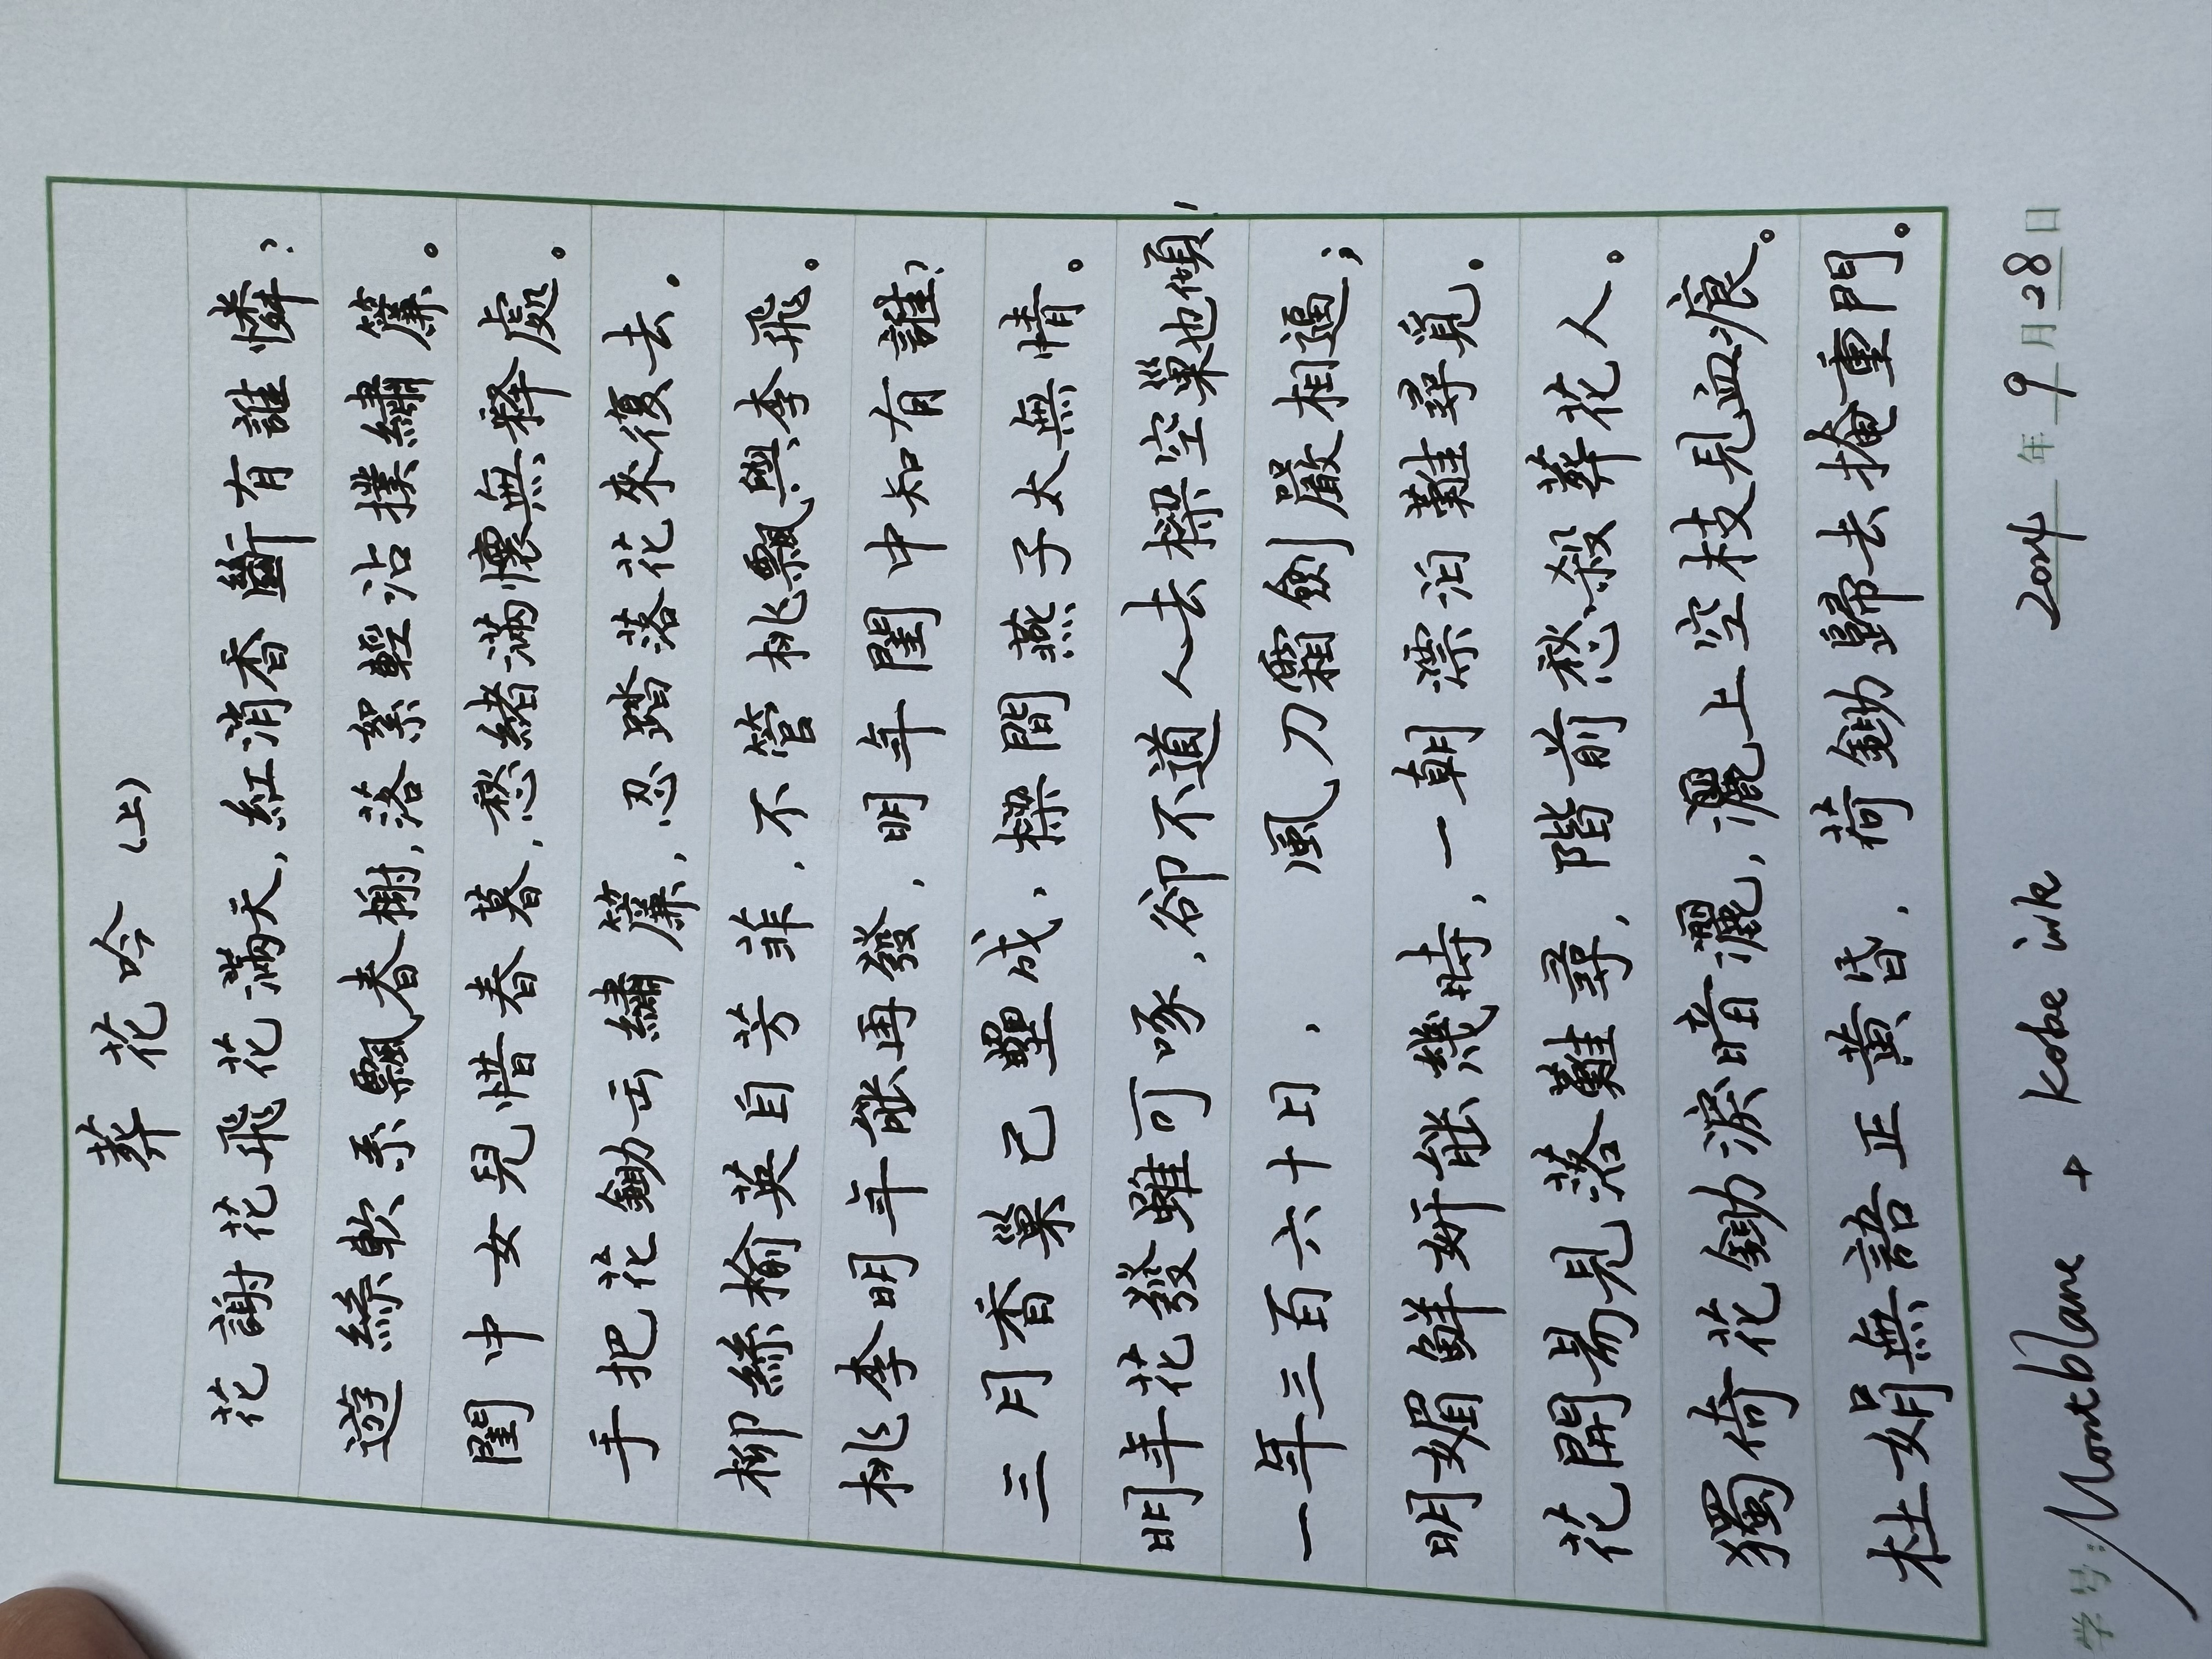 葬花吟(上)
花謝花飛花滿天,紅消香斷有誰憐?
遊絲軟系飄春榭,落絮輕沾撲繡簾。
閨中女兒惜春暮,愁緒滿懷無釋處。
手把花鋤出繡簾,忍踏落花來復去。
柳絲榆英自芳菲,不管桃飄與李飛。
桃李明年能再發,明年閨中知有誰?
三月香巢已壘成,樑間燕子太無情。
明年花發雖可啄,卻不道人去樑空巢也傾!
一年三百六十日,風刀霜劍嚴相逼;
明媚鮮妍能幾時,一朝漂泊難尋覓。
花開易見落難尋,階前愁殺葬花人。
獨倚花鋤淚暗灑,灑上空枝見血痕。
杜娟無語正黃昏,荷鋤歸去掩重門。
学号: Montblanc + Kobe ink 2024年9月28日